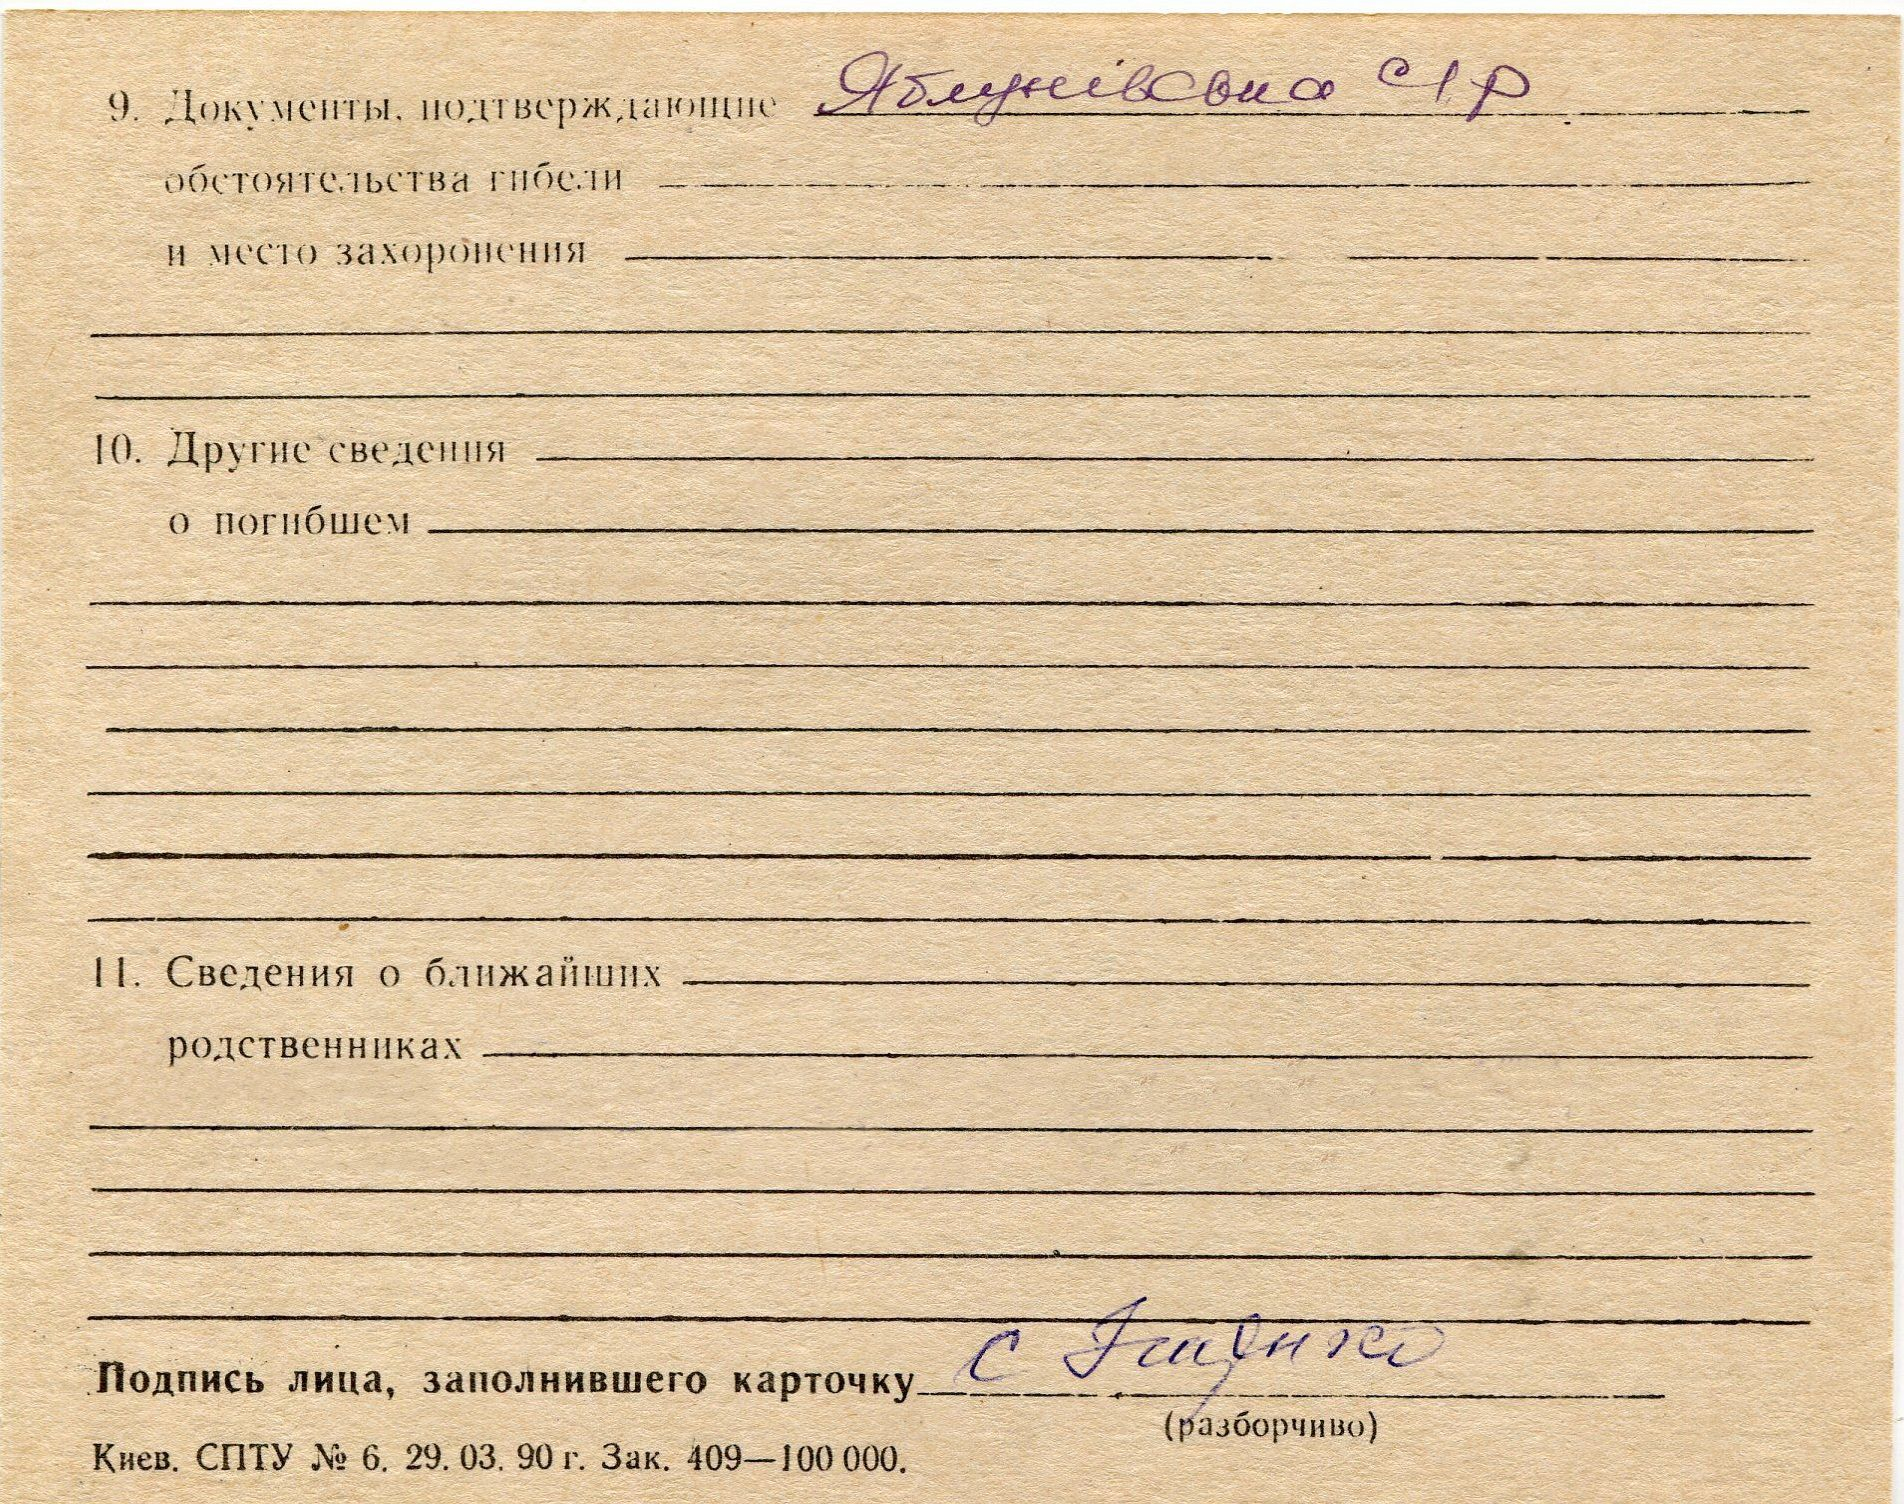 9. Документы, подтверждающие Яблунівська с/р
обстоятельства гибели
и место захоронения
10. Другие сведения
о погибшем
11. Сведения о ближайших
родственниках
Подпись лица, заполнившего карточку С
(разборчиво)
Киев. СПТУ № 6. 29. 03. 90 г. Зак. 409—100 000.